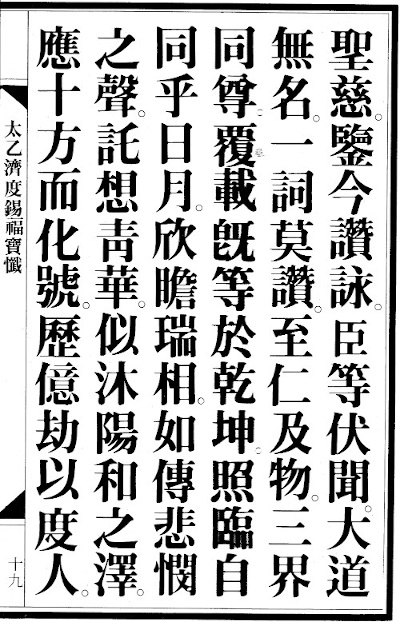 聖慈。鑒今讚詠。臣等伏聞。大道
無名。一詞莫讚。至仁及物。三界
同尊。覆載旣等於乾坤。照臨自
同乎日月。欣瞻瑞相。如傳悲憫
之聲。託想靑華。似沐陽和之澤。
應十方而化號。歷億劫以度人。
太乙濟度錫福寶懺
十九